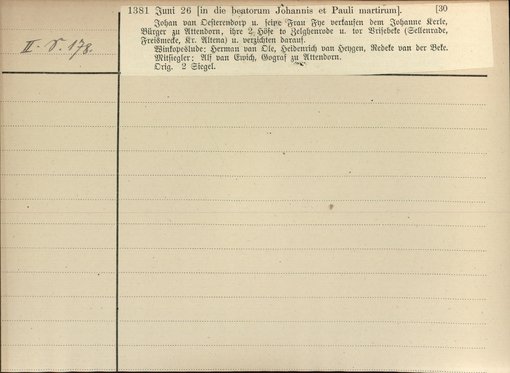 1381 Juni 26 [in die beatorum Johannis et Pauli martirum]. [30
II. S. 178.
Johan van Oesterendorp u. seine Frau Fye verkaufen dem Johanne Kerle,
Bürger zu Attendorn, ihre 2 Höfe to Zelghenrode u. tor Vrisebeke (Sellenrade,
Freismecke, Kr. Altena) u. verzichten darauf.
Winkopeslude: Herman van Ole, Heidenrich van Heygen, Redeke van der Beke.
Mitsiegler: Alf van Ewich, Gograf zu Attendorn.
Orig. 2 Siegel.